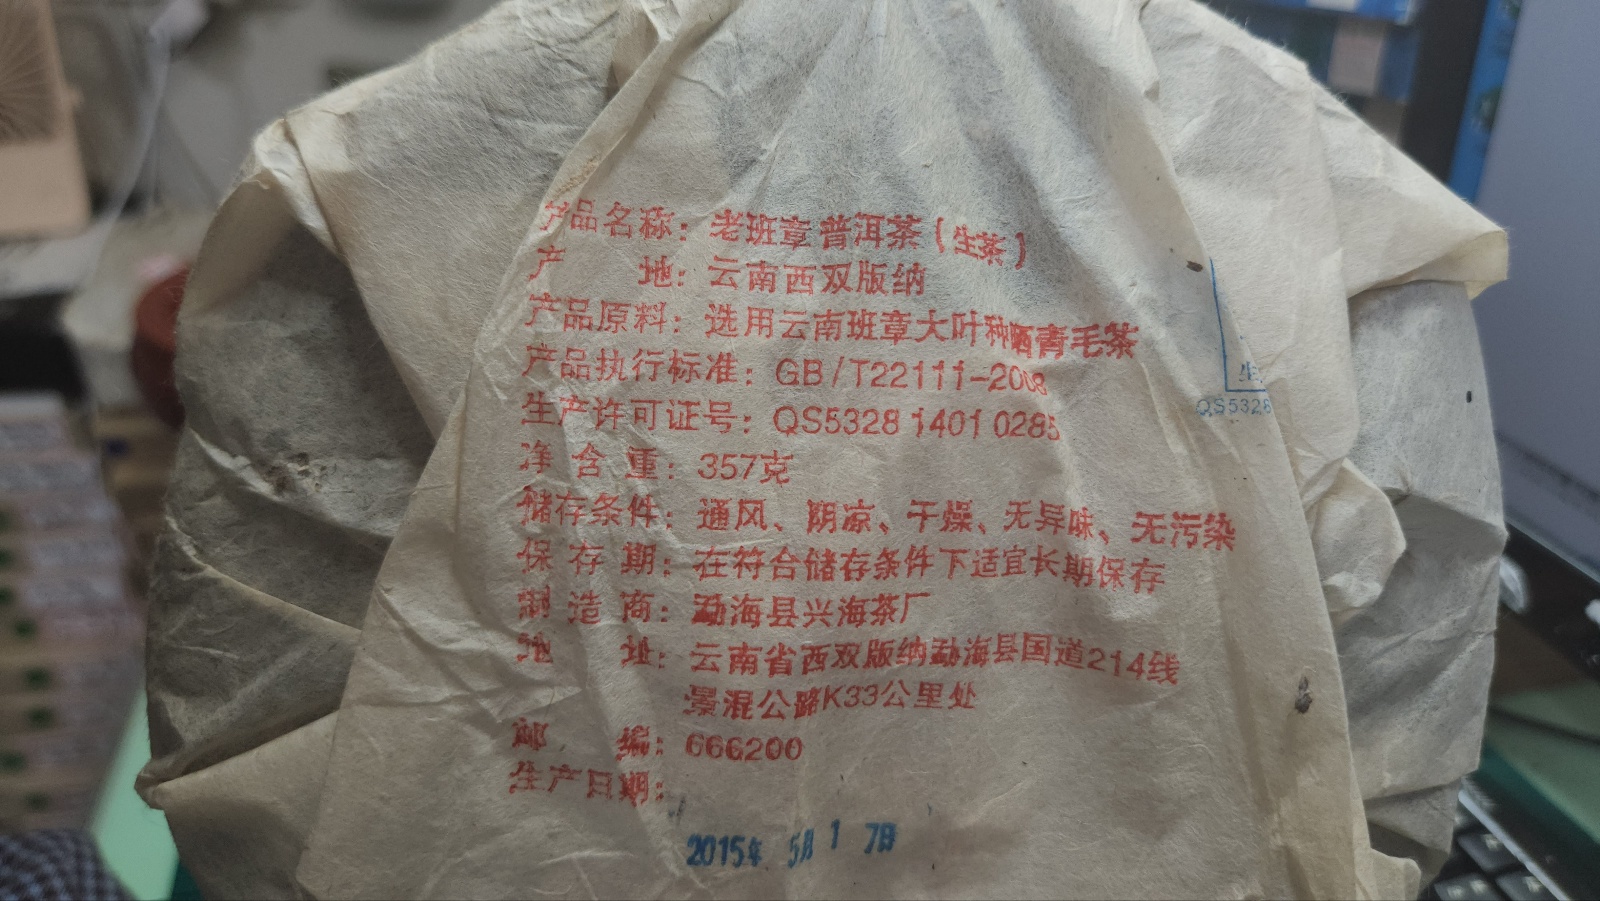 产品名称：老班章普洱茶（生茶）
产　　地：云南西双版纳
产品原料：选用云南班章大叶种晒青毛茶
产品执行标准：GB/T22111-2008
生产许可证号：QS5328 1401 0285
净 含 重：357克
储存条件：通风、阴凉、干燥、无异味、无污染
保 存 期：在符合储存条件下适宜长期保存
制 造 商：勐海县兴海茶厂
地　　址：云南省西双版纳勐海县国道214线
景混公路K33公里处
邮　　编：666200
生产日期：
2015年 5月 1 7日
生
QS5328